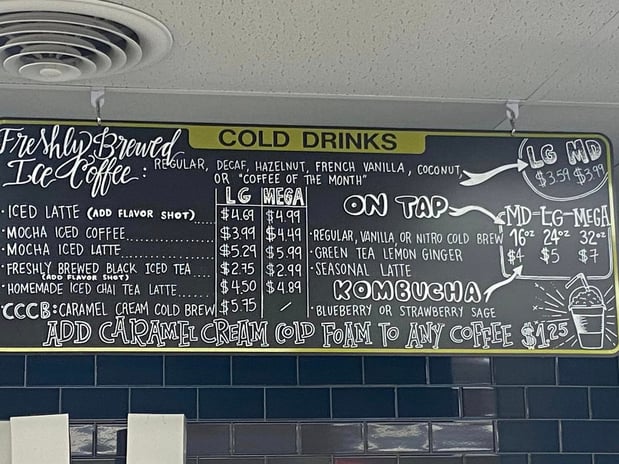 COLD DRINKS
Freshly Brewed
Ice Coffee:
REGULAR, DECAF, HAZELNUT, FRENCH VANILLA, COCONUT,
OR "COFFEE OF THE MONTH"
LG MD
$3.59 $3.99
LG MEGA
· ICED LATTE (ADD FLAVOR SHOT).... $4.69 $4.99
· MOCHA ICED COFFEE............ $3.99 $4.49
· MOCHA ICED LATTE............ $5.29 $5.99
· FRESHLY BREWED BLACK ICED TEA.... $2.75 $2.99
(ADD FLAVOR SHOT)
· HOMEMADE ICED CHAI TEA LATTE...... $4.50 $4.89
· CCCB: CARAMEL CREAM COLD BREW $5.75 /
ON TAP
MD-LG-MEGA
16oz 24oz 32oz
$4 $5 $7
· REGULAR, VANILLA, OR NITRO COLD BREW
· GREEN TEA LEMON GINGER
· SEASONAL LATTE
KOMBUCHA
· BLUEBERRY OR STRAWBERRY SAGE
ADD CARAMEL CREAM COLD FOAM TO ANY COFFEE $1.25